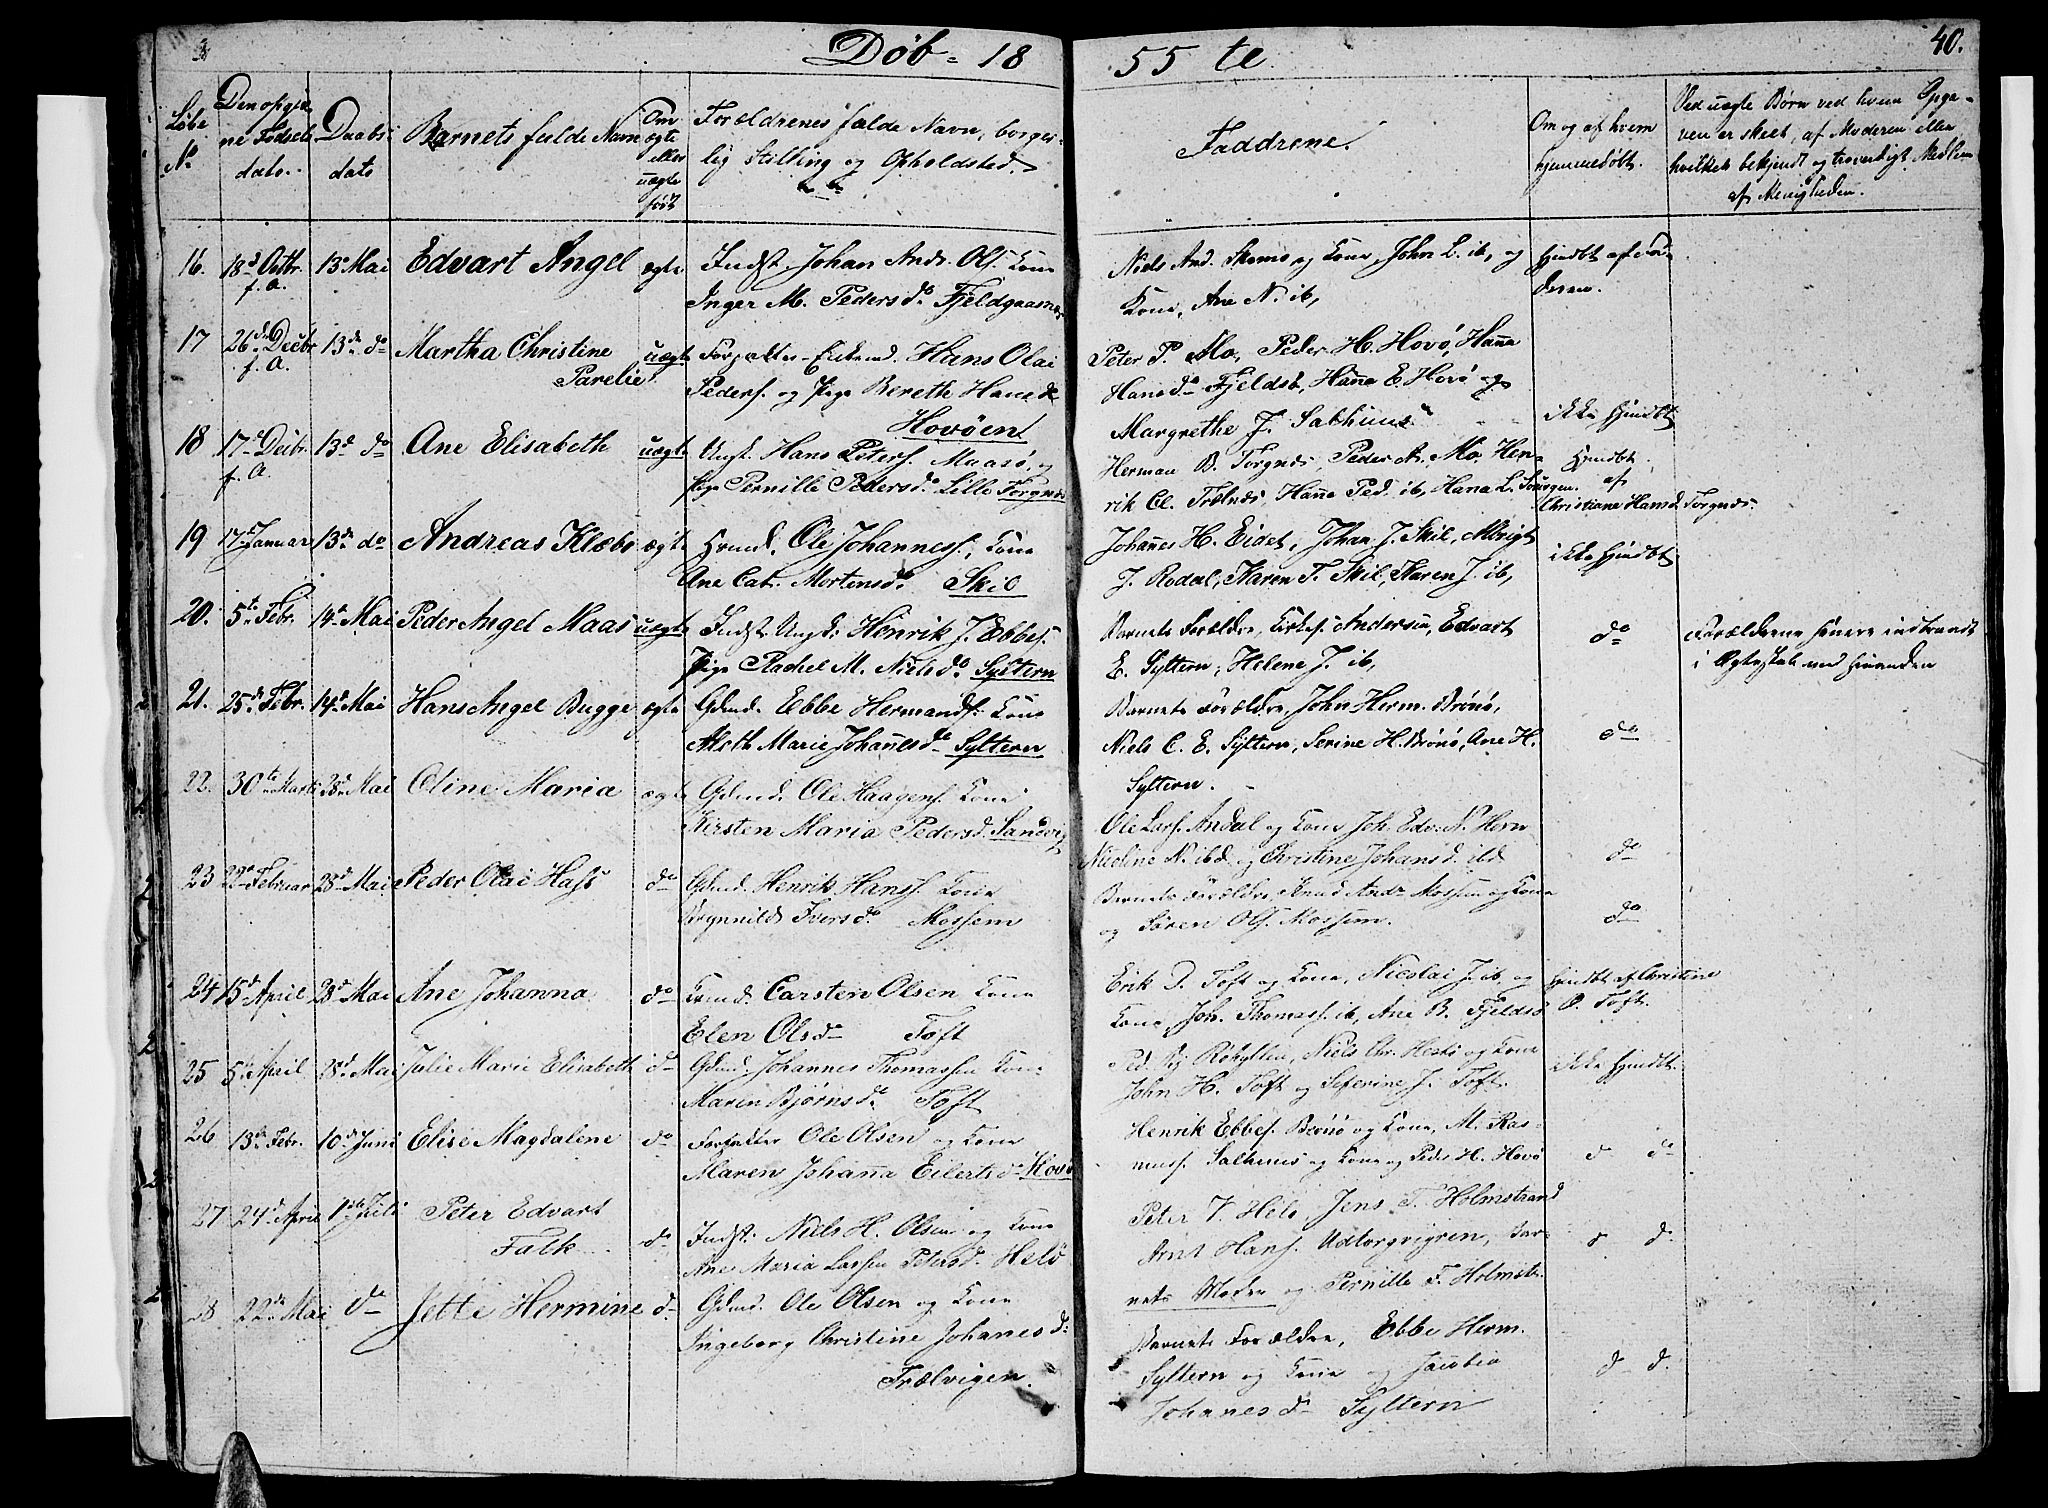 Døb - 18 55 te 40.
Løbe No
Den opgivne Fødselsdato.
Daabsdato
Barnets fulde Navn
Om ægte eller uægte født
Forældrenes fulde Navn, borgerlig Stilling og Opholdsted.
Faddrene.
Om og af hvem hjemmedøbt.
Ved uægte Børn ved hvem Opga-
ven er skeet, af Moderen eller
hvilket bekjendt og troværdigt Medlem
af Menigheden.
16. 18d Octbr f. A. 13 Mai Edvart Angel ægte Indst. Johan Andr. Ols. Kone
Inger M. Pedersd.
Niels And. og Kone, John L. ib, og
Kone, Ane N. ib,
Hjmdbt af Fa-
deren.
17 26de Decbr f. A. 13de do Martha Christine
Parelie
uægte Hans Olai
Peders. og Pige Berethe Hansd
Hovøen
Peter P. Mo, Peder H. Hovø, Hanna
Hansd Fjeldsø, Hanna E. Hovø og
Margrethe J. Salhuus
ikke Hjmdbt
18 17de Decbr. f. A. 13d do Ane Elisabeth uægte Ungk. Hans Peters. Maasø, og
Pige Pernille Pedersd. Lille Torgnæs
Herman B. Torgnæs, Peder A. Mo, Hen-
rik Cl. Trælnæs, Hanna Ped. ib, Hana L.
Hjmdbt
af
Christiane Hansd. Torgnæs.
19 17de Januar 13de do Andreas Klæbo ægte Ole Johanness., Kone
Ane Cat. Mortensd. Skil
Johannes H. Eidet, Johan J. Skil, Albrigt
J. Rodal, Karen T. Skil, Karen J. ib,
ikke Hjmdbt
20. 5te Febr. 14de Mai Peder Angel Maas uægte Indst. Ungk: Henrik J. Ebbes.
Pige Rachel M. Nielsd. Syltern
Barnets Forældre, Kirkes. Andersen, Edvart
E. Syltern, Helene J. ib,
do
Forælderne senere indtraadt
i Ægteskab med hinanden
21. 25de Febr. 14de Mai Hans Angel Bugge ægte Gdmd. Ebbe Hermands. Kone
Aleth Marie Johannesd Syltern
Barnets Forældre, John Herm. Brønø,
Niels C. E. Syltern, Serine H. Brønø, Ane H.
Syltern.
do
22. 30te Marts 28de Mai Oline Maria ægte Gdmd. Ole Haagens. Kone
Kirsten Maria Pedersd. Sandvig
Ole Lars. Andal og Kone, Joh. Edv. N. Horn
Nicoline N. ibd. og Christine Johansd. ibd
do
23 22de Februar 28de Mai Peder Olai Hass do Gdmd. Henrik Hanss. Kone
Brynnild Iversd. Mossem
Barnets Forældre, Knud Andr Mossem og Kone
og Søren Ols. Mossem.
do
24 15d April 28de Mai Ane Johanna do Carsten Olsen Kone
Elen Olsd Toft
Erik D. Toft og Kone, Nicolai J. ib og
Kone, Joh. Thomass. ib, Ane B. Fjeldsø
Hjmdbt af Christine
O. Toft.
25 5te April 28de Mai Julie Marie Elisabeth do Gdmd. Johannes Thomassen Kone
Maren Bjørnsd. Toft
Ped. Røhylten, Niels Chr. Hestø og Kone
John H. Toft og Seferine J. Toft.
ikke Hjmdbt.
26 13de Febr. 10de Juni Elise Magdalene do Forpakter Ole Olsen og Kone
Maren Johanna Eilertsd. Hovø
Henrik Ebbes. Brønø og Kone, M. Ras-
muss. Salhuus og Kone og Peder H. Hovø
d do
27 24d April 1ste Juli Peter Edvart
Falk
do Indst. Niels H. Olsen og Kone
Ane Maria Lassen Petersd. Helø
Peter J. Helø, Jens T. Holmstrand
Arnt Hans. Udtorgvigen, Bar-
nets Moder og Pernille F. Holmstr.
d d.
28 22de Mai do Jette Hermine do Gdmd. Ole Olsen og Kone
Ingeborg Christine Johanesd.
Trælvigen.
Barnets Forældre, Ebbe Herm.
Syltern og Kone og Jacobia
Johanesd. Syltern
d d.